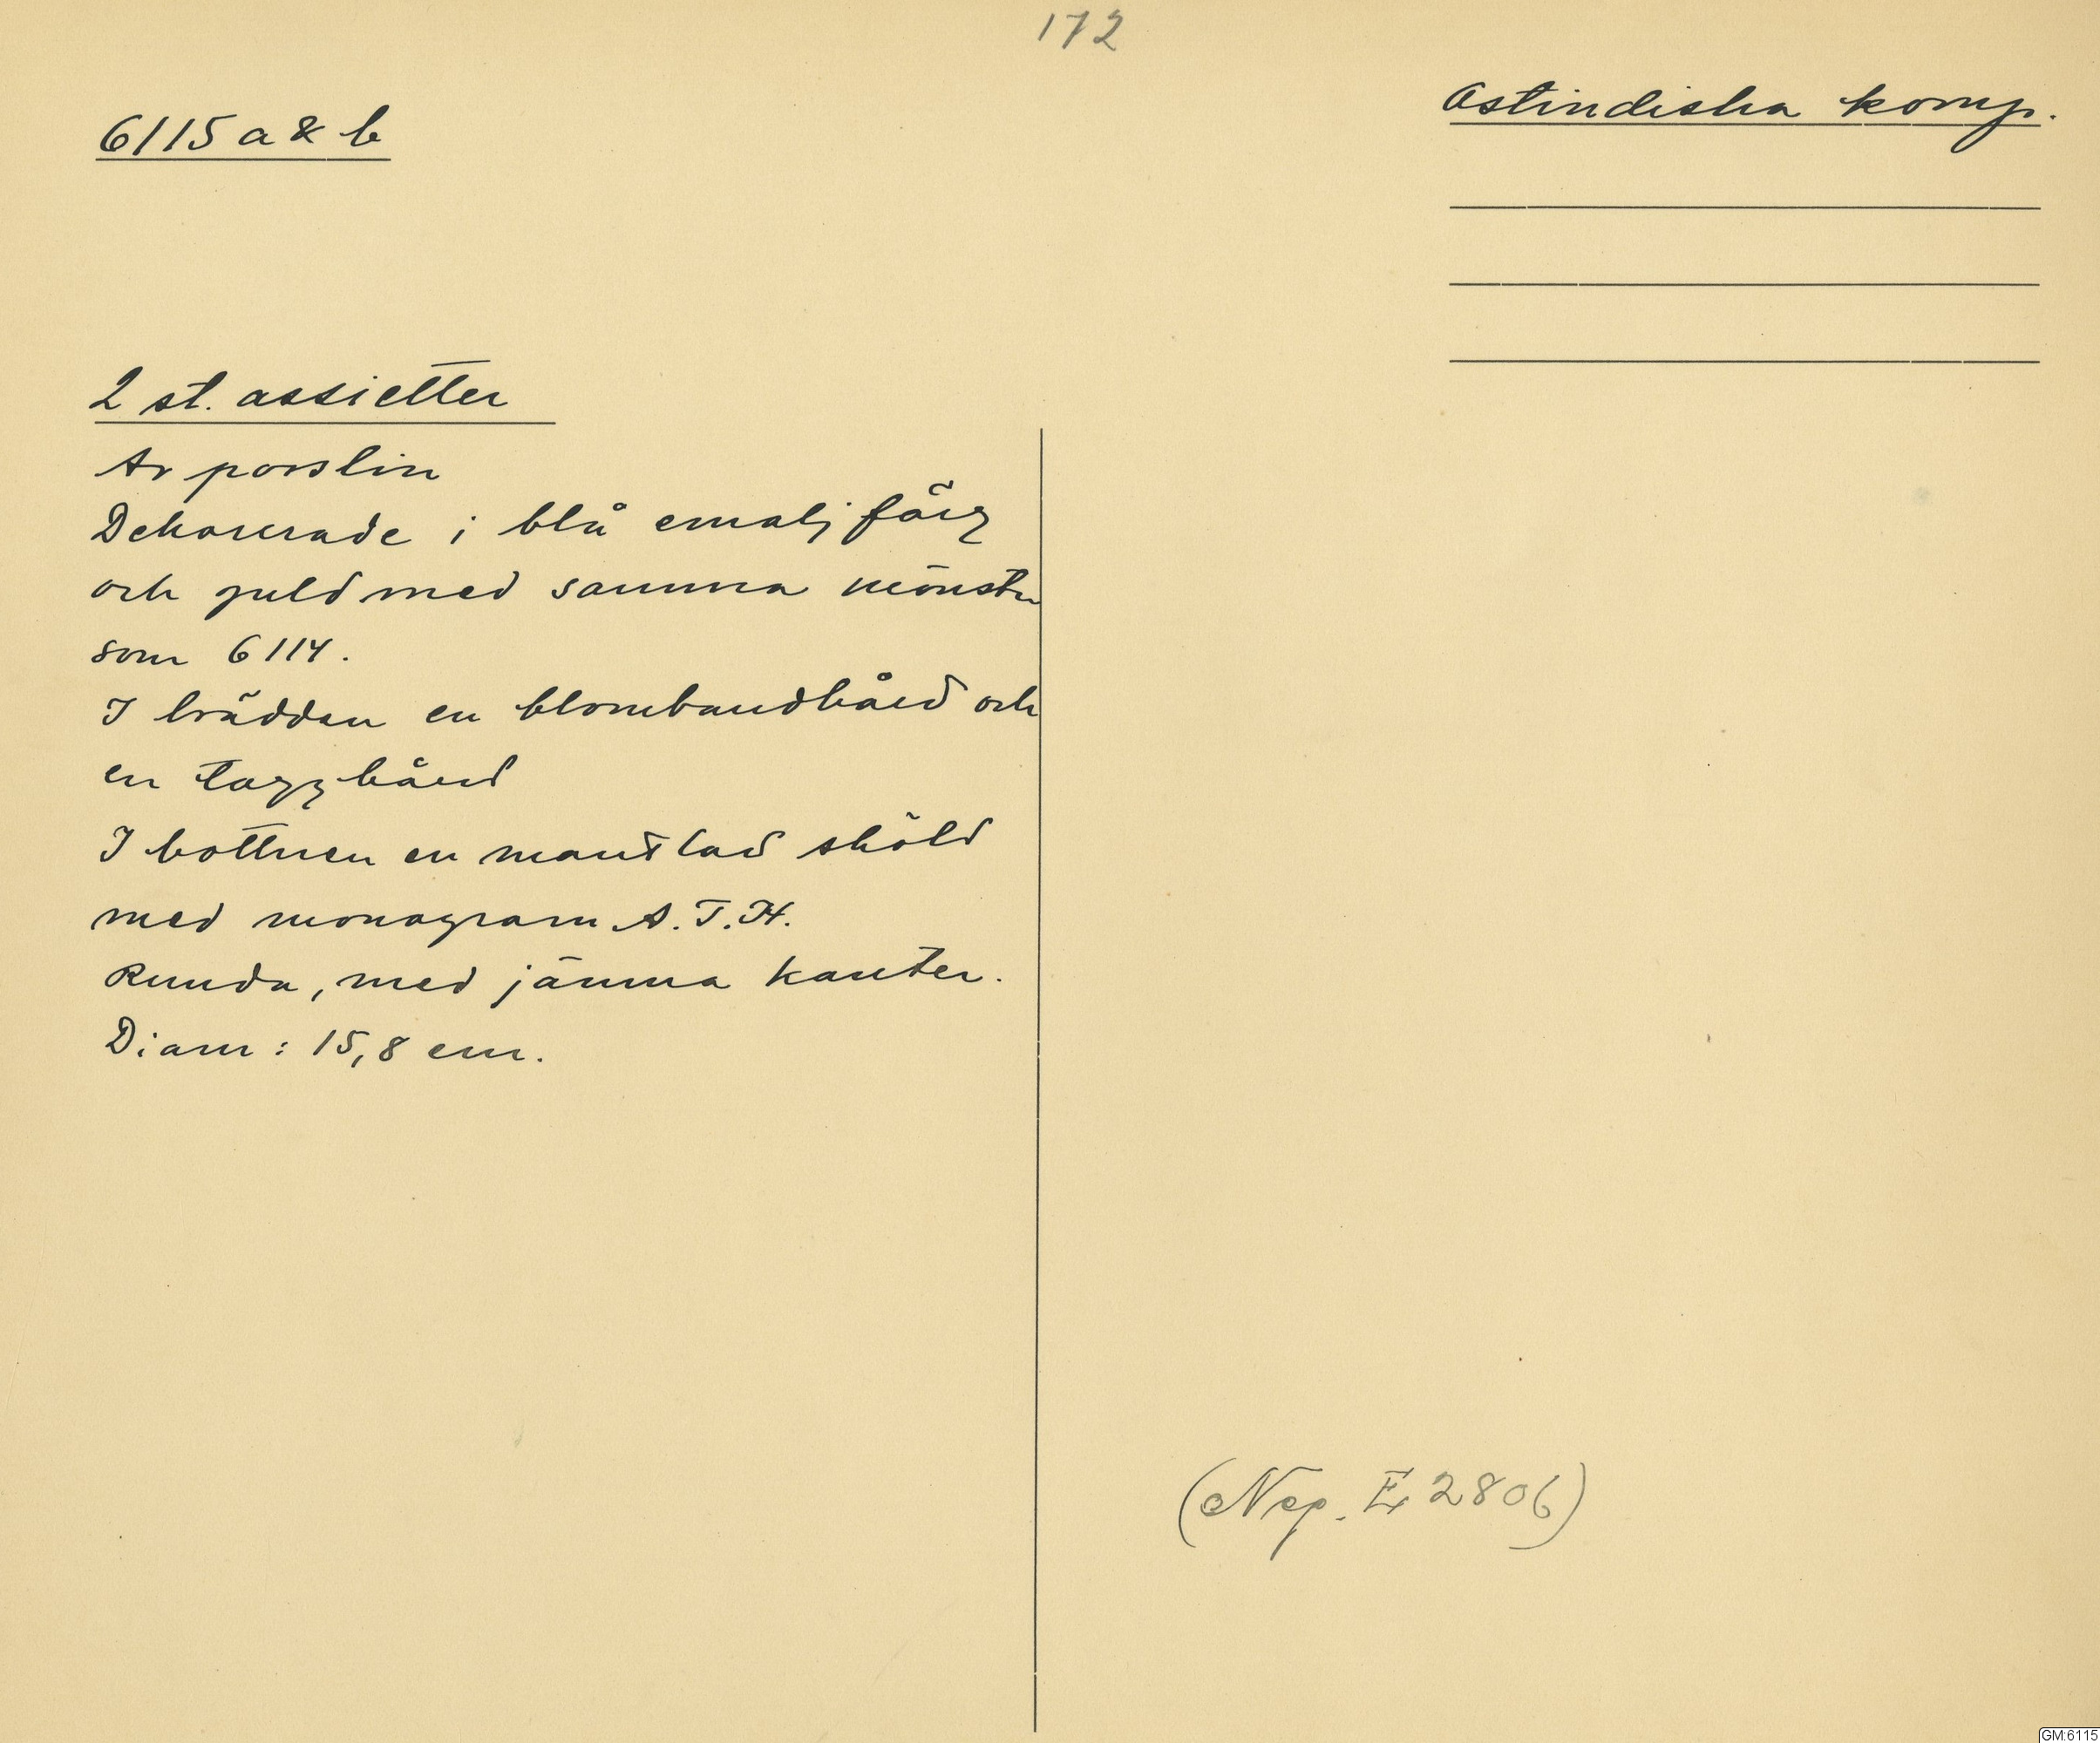 172
6115 a & b
Ostindiska komp.
2 st. assietter
Av porslin
Dekorerade i blå emaljfärg
och guld med samma mönster
som 6114.
I brädden en blombandbård och
en taggbård
I bottnen en mantlad sköld
med monogram A.T.H.
Runda, med jämna kanter.
Diam: 15,8 cm.
(Nep. E 2806)
GM:6115